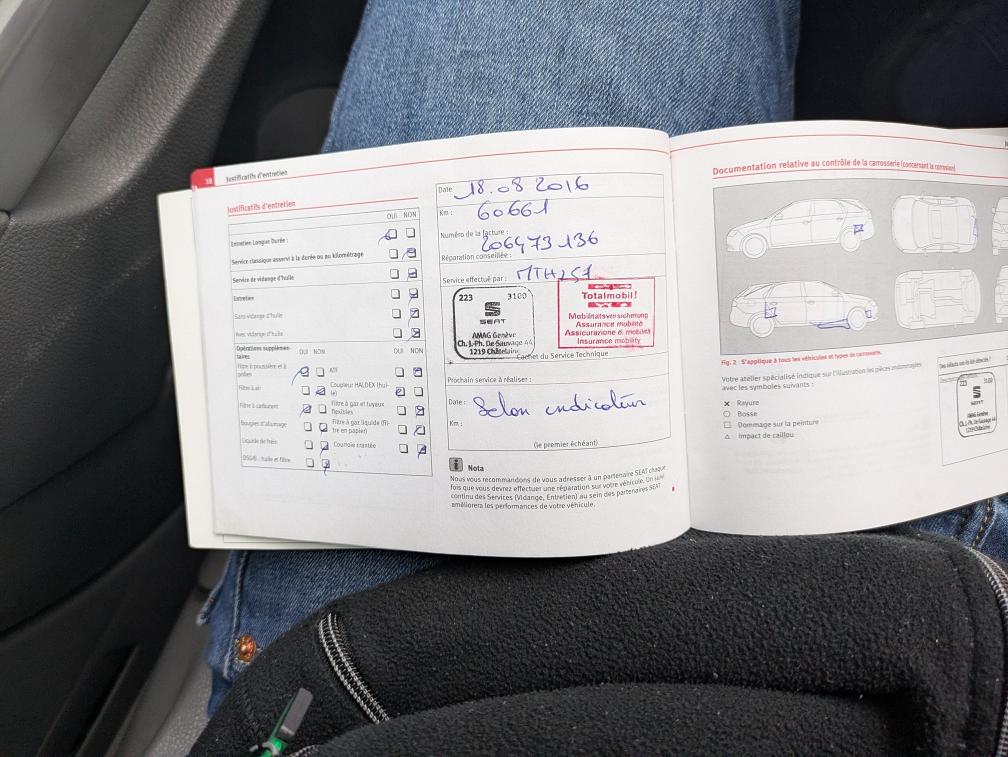 38
Justificatifs d'entretien
Justificatifs d'entretien
OUI NON
Entretien Longue Durée :
Service classique asservi à la durée ou au kilométrage
Service de vidange d'huile
Entretien
Sans vidange d'huile
Avec vidange d'huile
Opérations supplémen-
taires
OUI NON
OUI NON
Filtre à poussière et à
pollen
ATF
Filtre à air
Coupleur HALDEX (hui-
le)
Filtre à carburant
Filtre à gaz et tuyaux
flexibles
Bougies d'allumage
Filtre à gaz liquide (fil-
tre en papier)
Liquide de frein
Courroie crantée
DSG® : huile et filtre
Date 18.08 2016
Km : 60661
Numéro de la facture :
206473136
Réparation conseillée :
Service effectué par : MTH257
223 3100
SEAT
AMAG Genève
Ch. J.-Ph. De-Sauvage 44
1219 Châtelaine
Totalmobil!
Mobilitätsversicherung
Assurance mobilité
Assicurazione di mobilità
Insurance mobility
Cachet du Service Technique
Prochain service à réaliser :
Date : Selon indicateur
Km :
(le premier échéant)
Nota
Nous vous recommandons de vous adresser à un partenaire SEAT chaque
fois que vous devrez effectuer une réparation sur votre véhicule. Un suivi
continu des Services (Vidange, Entretien) au sein des partenaires SEAT
améliorera les performances de votre véhicule.
Documentation relative au contrôle de la carrosserie (concernant la corrosion)
Fig. 2 S'applique à tous les véhicules et types de carrosserie.
Votre atelier spécialisé indique sur l'illustration les pièces endommagées
avec les symboles suivants :
Rayure
Bosse
Dommage sur la peinture
Impact de caillou
Des défauts ont-ils été détectés ?
223 3100
SEAT
AMAG Genève
Ch. J.-Ph. De-Sauvage 44
1219 Châtelaine